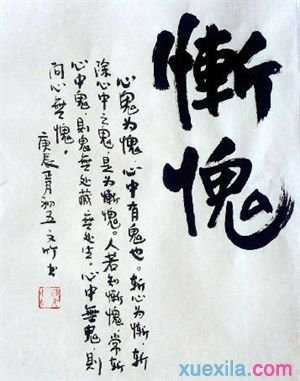 慚愧
心鬼为愧，心中有鬼也。斩心为慚，斩
除心中之鬼，是为慚愧。人若知慚愧，常斩
心中鬼，则鬼無处藏無处生，心中無鬼，则
问心無愧。
庚辰正月初五文竹书
xuexila.com